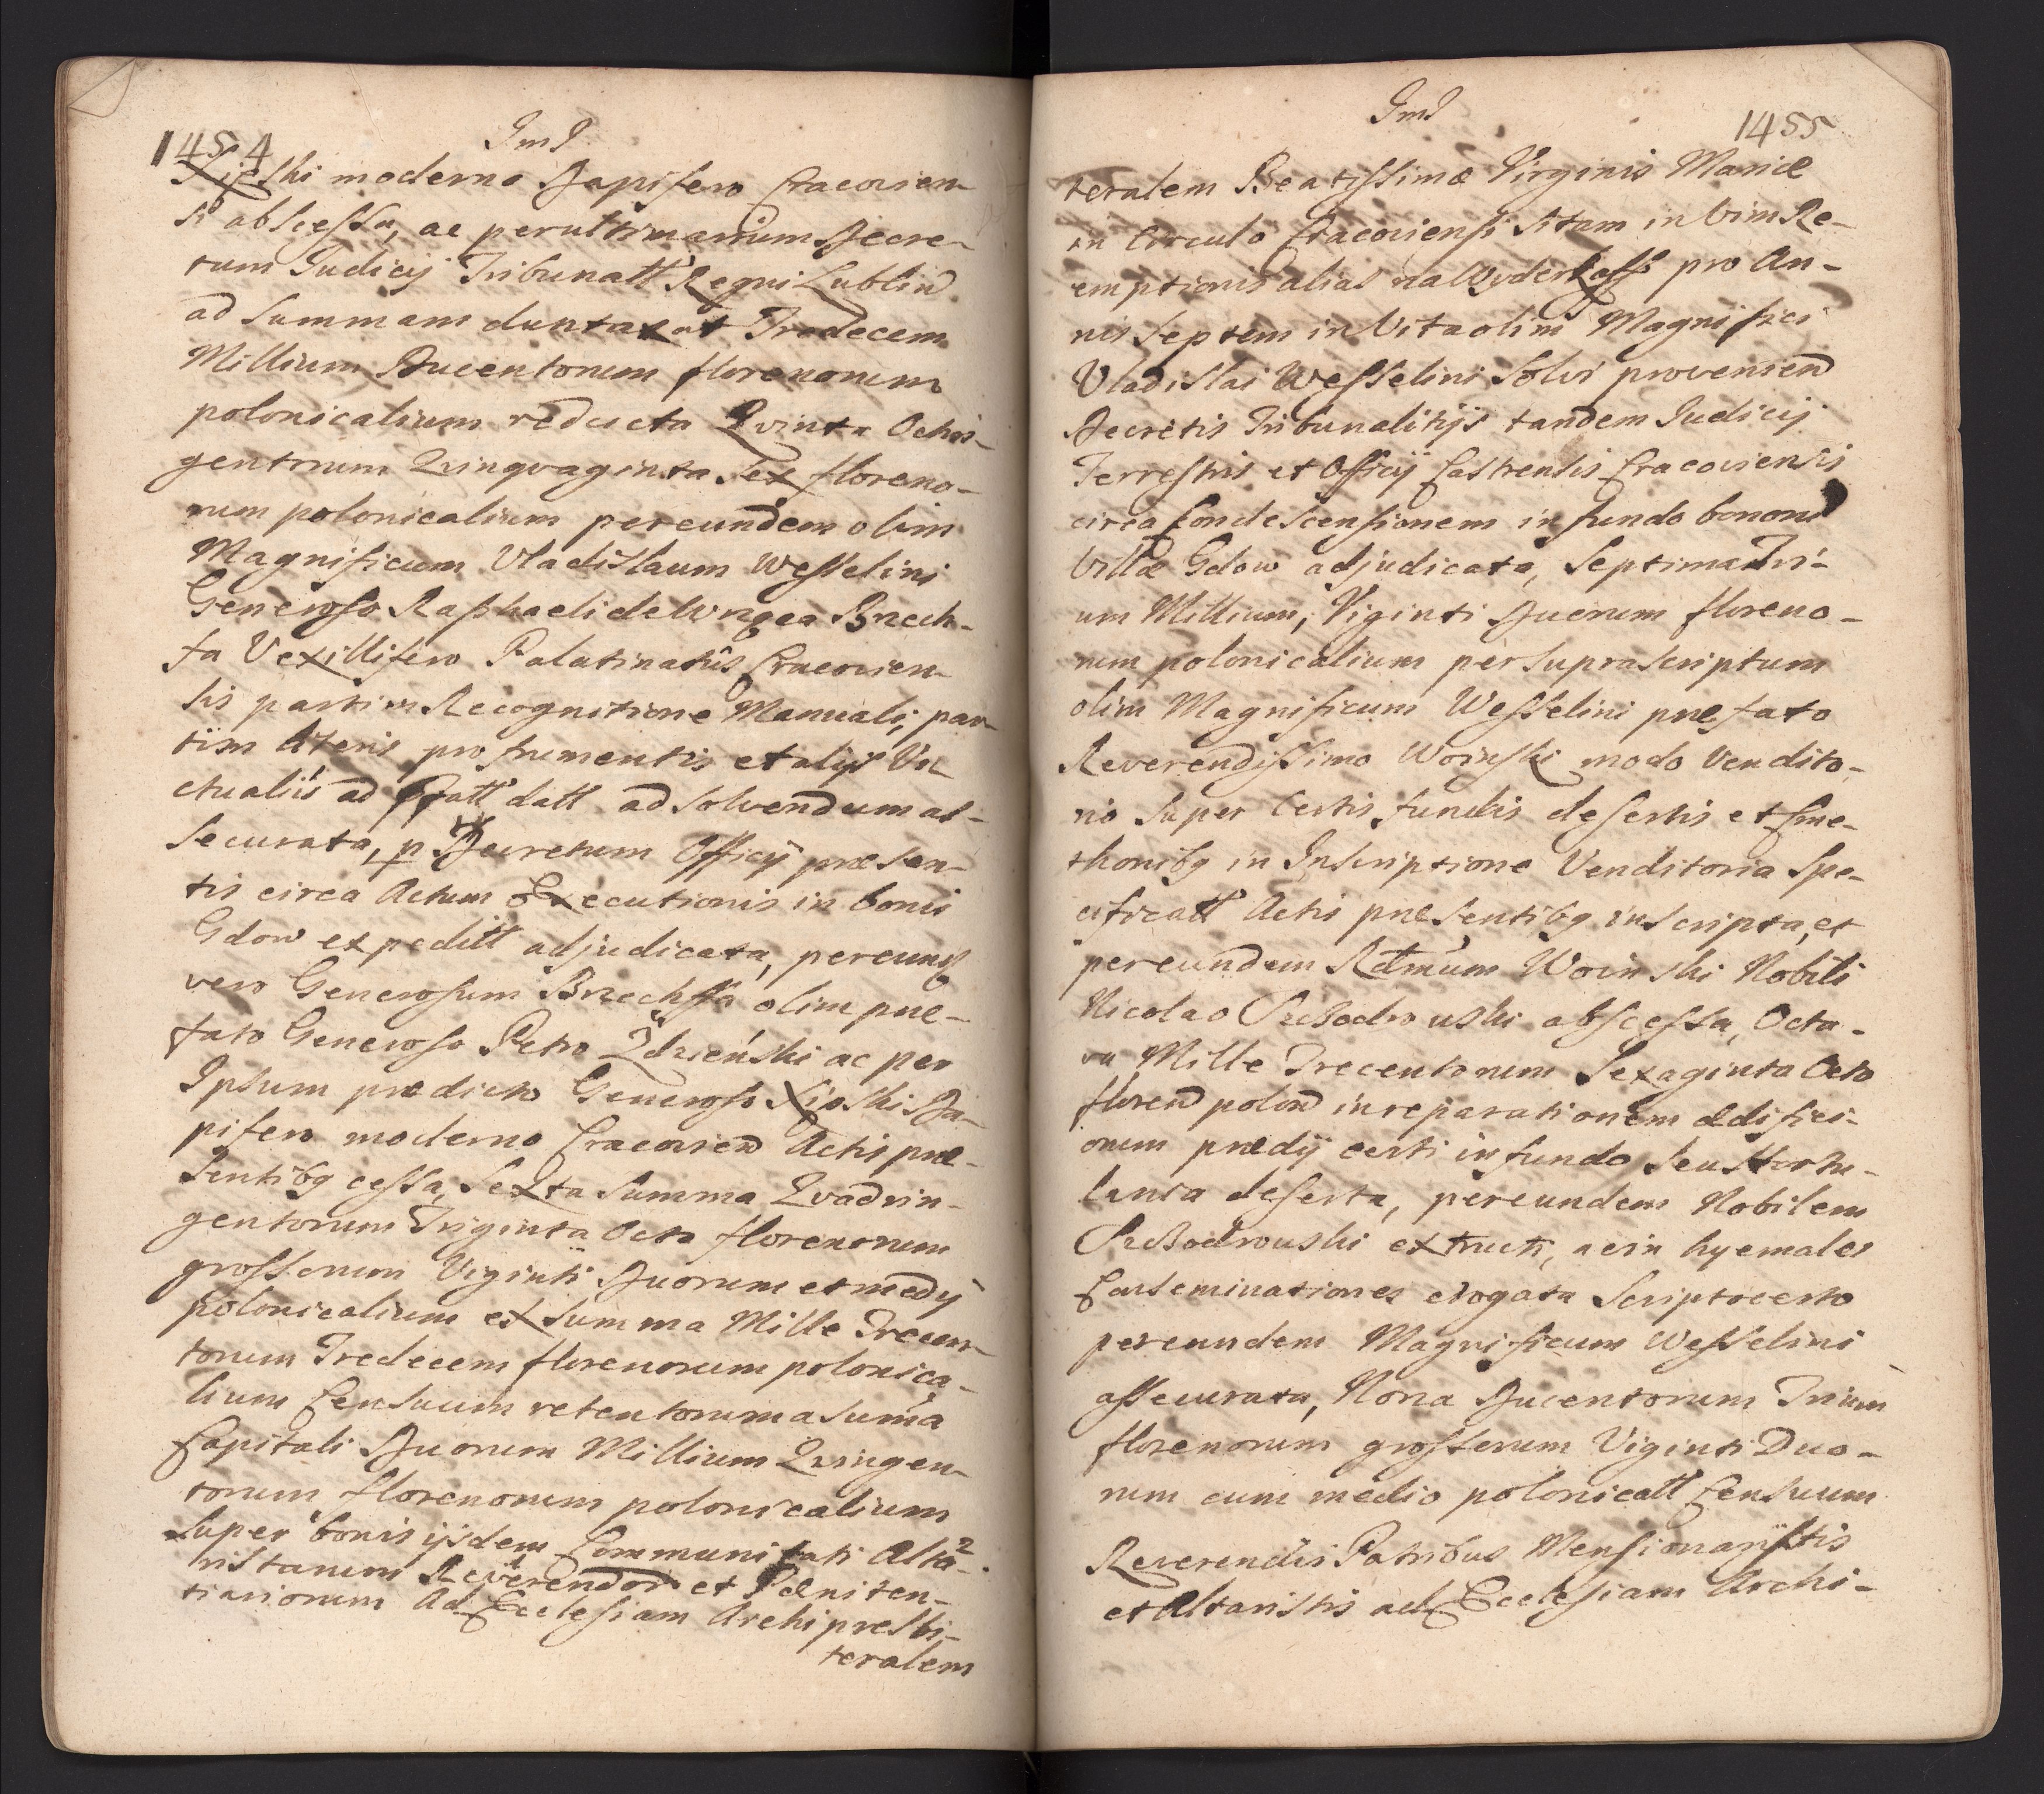 1454
Xięski moderno Dapifero Cracovien-
si abscessa, ac per ultimarium Decre-
tum Judicij Tribunatt Regni Lublin
ad Summam duntaxat Tredecem
Millium Ducentorum florenorum
polonicalium reducta Qvinta Octin-
gentorum Qvinqvaginta Sex floreno-
rum polonicalium per eundem olim
Magnificum Vladislaum Wesselini
Generoso Raphaeli de Wrzęca Brzech-
fa Vexillifero Palatinatûs Cracovien-
sis partim Recognitione Manuali, par-
tim literis pro frumentis et alijs Vi-
ctualiis ad datt ad solvendum as-
securata, p Decretum Officij præsen-
tis circa Actum Executionis in bonis
Gdow expeditt adjudicata, per eund
vero Generosum Brzechffa olim præ-
fato Generoso Petro Zdzieński ac per
Ipsum prædicto Generoso Xięski Da-
pifero moderno Cracovien Actis præ-
sentibq cessa, Sexta Summa Qvadrin-
gentorum Triginta Octo florenorum
grossorum Viginti Duorum et medij
polonicalium ex Summa Mille Trecen-
torum Tredecem florenorum polonica-
lium Censuum retentorum a Suma
Capitali Duorum Millium Qvingen-
torum florenorum polonicalium
super bonis ijsdem Communitati Alta-
ristarum Reverendor et Pæniten-
tiariorum Ad Ecclesiam Archipresbi-
teralem
1455
teralem Beatissimæ Virginis Mariæ
in Circulo Cracoviensi sitam in vim Re-
emptionis alias na Wyderkaff pro An-
nis Septem in Vita olim Magnifici
Vladislai Wesselini Solvi provenien
Decretis Tribunalitijs tandem Judicij
Terrestris et Officij Castrensis Cracoviensis
circa Condescensionem in fundo bonorũ
Villæ Gdow adjudicata, Septima Tri-
um Millium, Viginti Duorum floreno-
rum polonicalium per suprascriptum
olim Magnificum Wesselini præfato
Reverendissimo Woinski modo Vendito-
rio super Certis fundis desertis et Cme-
thonibq in Inscriptione Venditoria Spe-
cificatt Actis præsentibq inscripta, et
per eundem Rdmum Woinski Nobili
Nicolao abscessa, Octa-
va Mille Trecentorum Sexaginta Octo
floren polon in reparationem ædifici-
orum prædij certi in fundo seu Hortu-
lania deserta, per eundem Nobilem
extructi, ac in hyemales
Conseminationes erogata Scripto certo
per eundem Magnificum Wesselini
assecurata, Nona Ducentorum Trium
florenorum grossorum Viginti Duo-
rum cum medio polonicatt Censuum
Reverendis Patribus Mensionarijstis
et Altaristis ad Ecclesiam Archi-